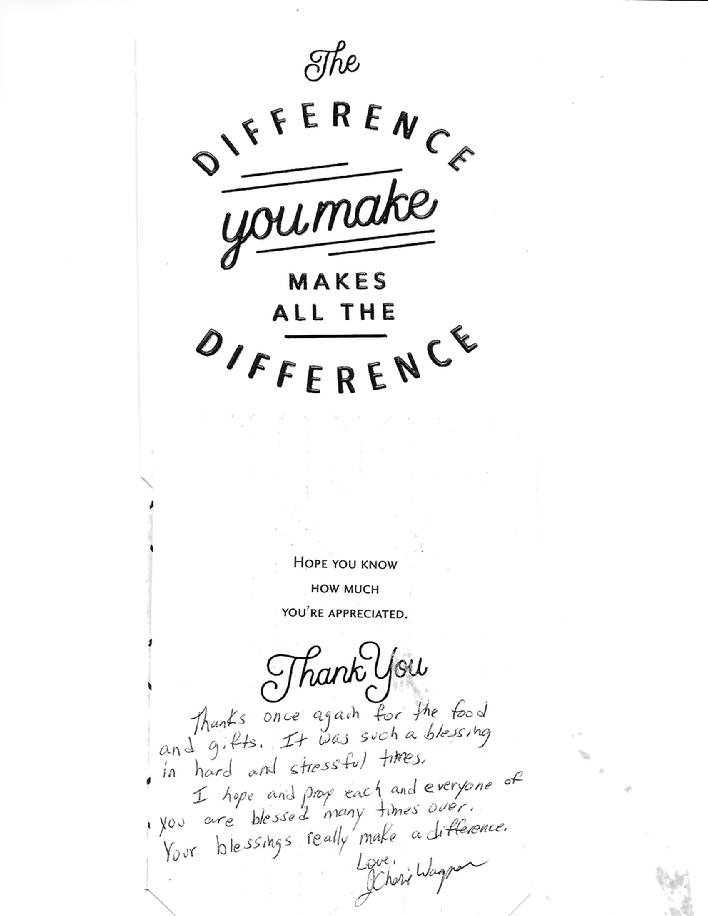 The
DIFFERENCE
you make
MAKES
ALL THE
DIFFERENCE
HOPE YOU KNOW
HOW MUCH
YOU'RE APPRECIATED.
Thank You
Thanks once again for the food
and gifts. It was such a blessing
in hard and stressful times.
I hope and pray each and everyone of
you are blessed many times over.
Your blessings really make a difference.
Love,